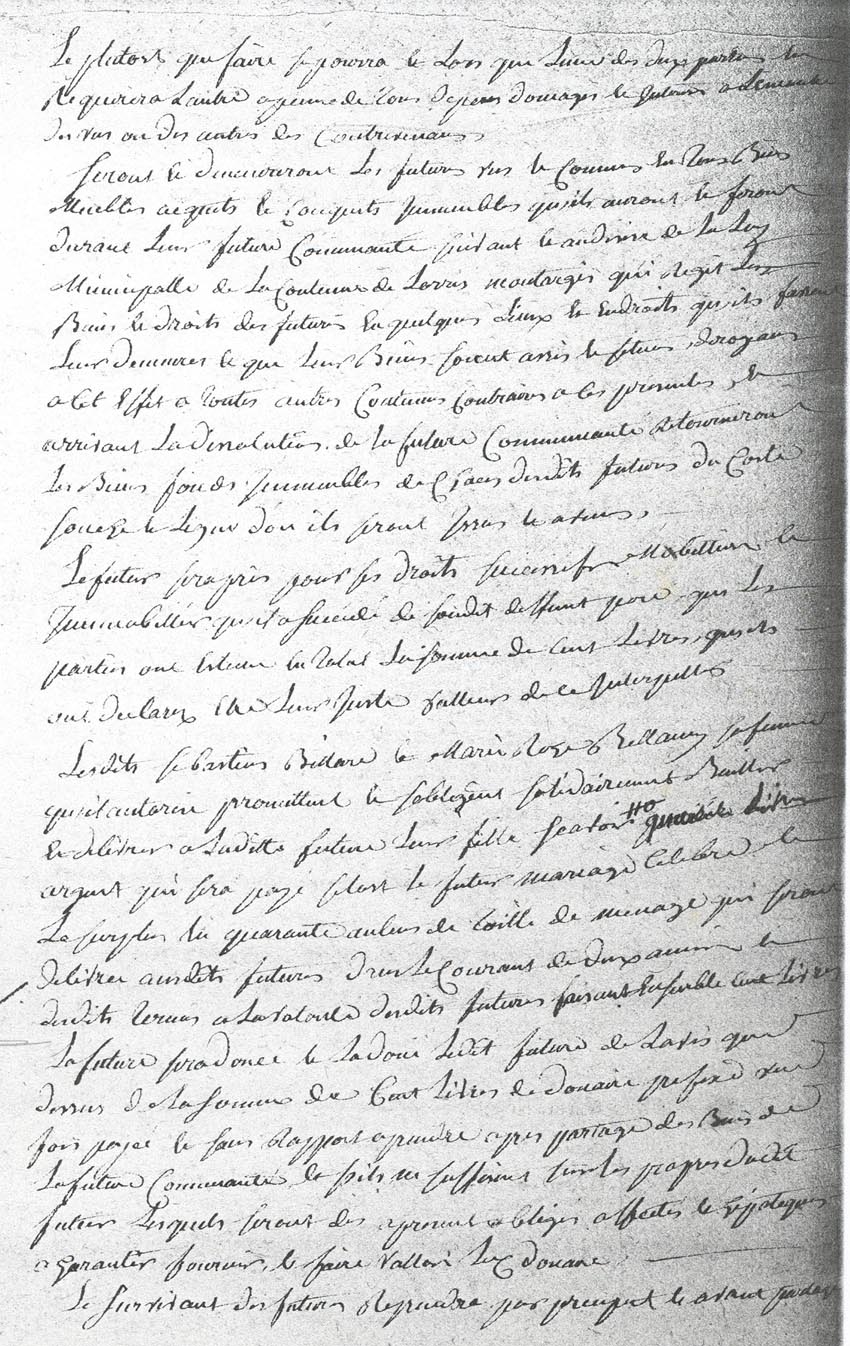 Le plutost que faire se pourra et Lors que Lune des deux parties en
Requerera Lautre a penne de tous depens domages et Interets a Lencontre
des uns ou des autres des Contrevenans,
Seront et demeureront Les futurs uns et Communs En tous Biens
Meubles acquets et Conquets Immeubles qu'ils auront et feront
durant Leur future Communauté suivant et au desire de La Loy
Municipalle de La Coutume de Lorris montargis qui Regit Les
Biens et droits des futurs En quelques Lieux et Endroits qu'ils fassent
Leur demeures et que Leur Biens soient assis et situes, derogeans
a Cet Effet a toutes autres Coutumes Contraires a Ces presentes, Et
arrivant La dissolution de La future Communauté Retourneront
Les Biens fonds Immeubles de Chacun desdits futurs du Costé
souche et Ligne d'ou ils seront Issus et avenus,
Le futur sera pris pour ses droits successifs Mobilliers et
Immobilliers qu'il a succédé de sondit deffunt pere que Les
parties ont Estimé En total La somme de Cent Livres, qu'ils
ont declarez Etre Leur Juste valleur de ce Interpellés
Lesdits sebastien Bédare et Marie Roze Bellamy sa femme
qu'il autorise promettent et sobligent solidairement Bailler
Et delivrer a Laditte future Leur fille scavoir Livres
argent qui sera payé sitost Le futur mariage Celebré et
Le surplus En quarante aulnes de toille de menage qui seront
delivrer auxdits futurs dans Le Courant de deux années et
desdits termes a La volonté desdits futurs faisant Ensemble cent Livres
La future sera doüee et La doüe Ledit future de Lavis que
dessus de La somme de Cent Livres de doüaire prefix d'une
fois payée et sans Rapport a prendre apres partage des Biens de
La future Communauté, Et s'ils ne suffisent sur Les propres dudit
futur Lesquels seront des apresent obligés affectés et hipotequés
a garantir fournir, et faire valloir Led. doüaire
Le survivant des futurs Reprendra par preciput et avant partage